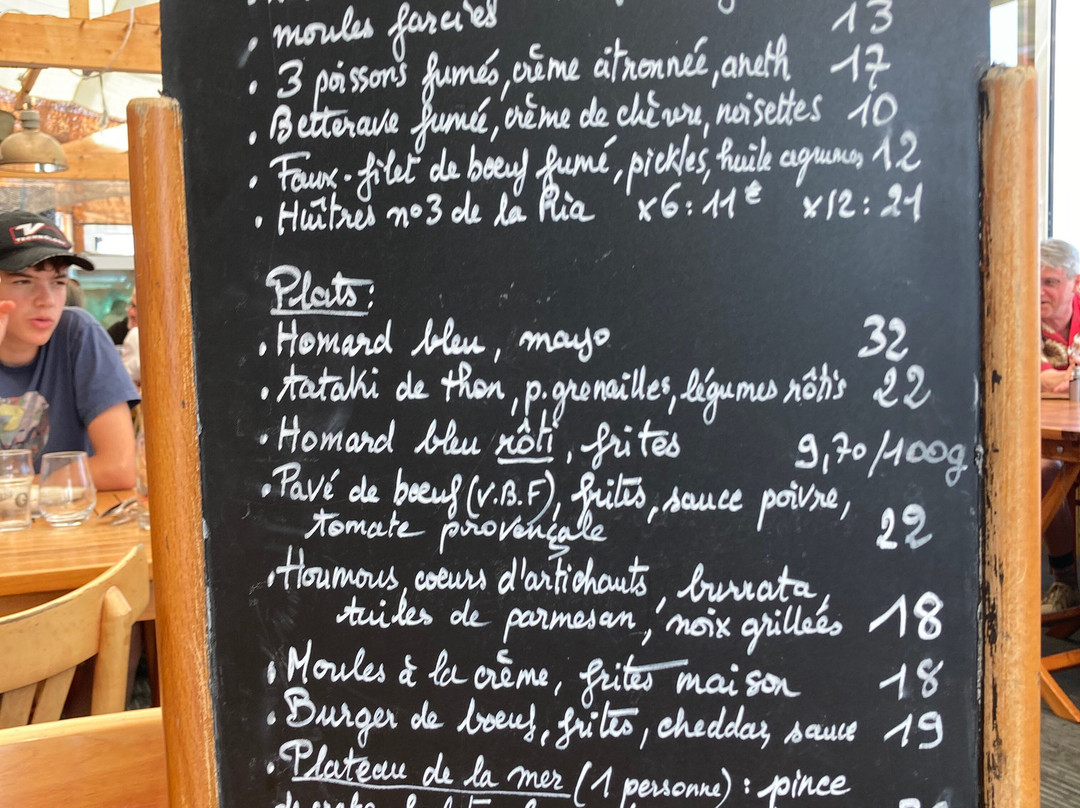 . moules farcies 13
. 3 poissons fumés, crème citronnée, aneth 17
. Betterave fumée, crème de chèvre, noisettes 10
. Faux-filet de boeuf fumé, pickles, huile agrumes 12
. Huîtres n°3 de la Ria x6 : 11€ x12 : 21
Plats :
. Homard bleu, mayo 32
. tataki de thon, p. grenailles, légumes rôtis 22
. Homard bleu rôti, frites 9,70/100g
. Pavé de boeuf (V.B.F), frites, sauce poivre,
tomate provençale 22
. Houmous, coeurs d'artichauts, burrata,
tuiles de parmesan, noix grillées 18
. Moules à la crème, frites maison 18
. Burger de boeuf, frites, cheddar, sauce 19
. Plateau de la mer (1 personne) : pince